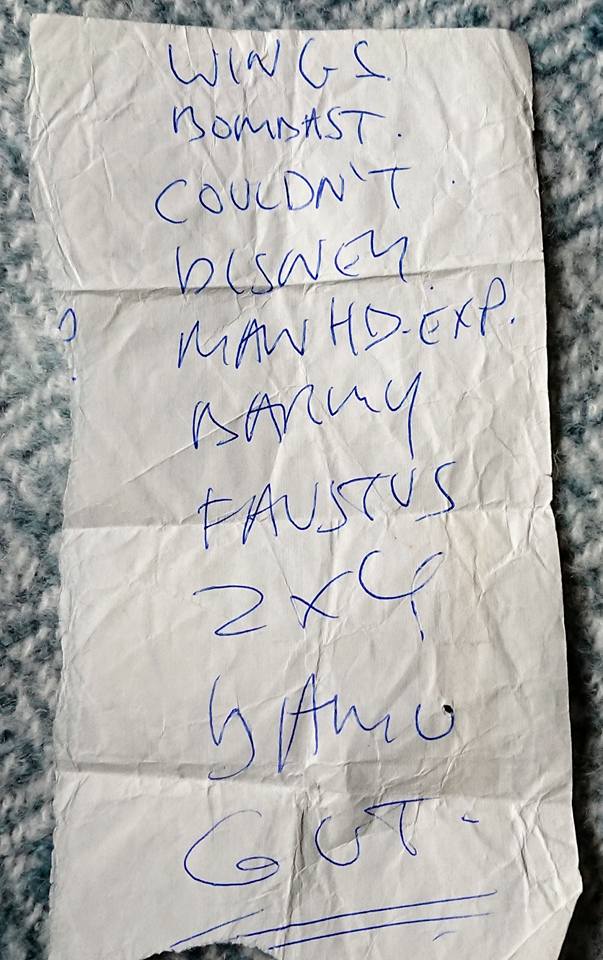 WINGS.
BOMBAST.
COULDN'T.
DISNEY.
? MAN HD-EXP.
BARMY
FAUSTUS
2x4
DAMO
GUT-